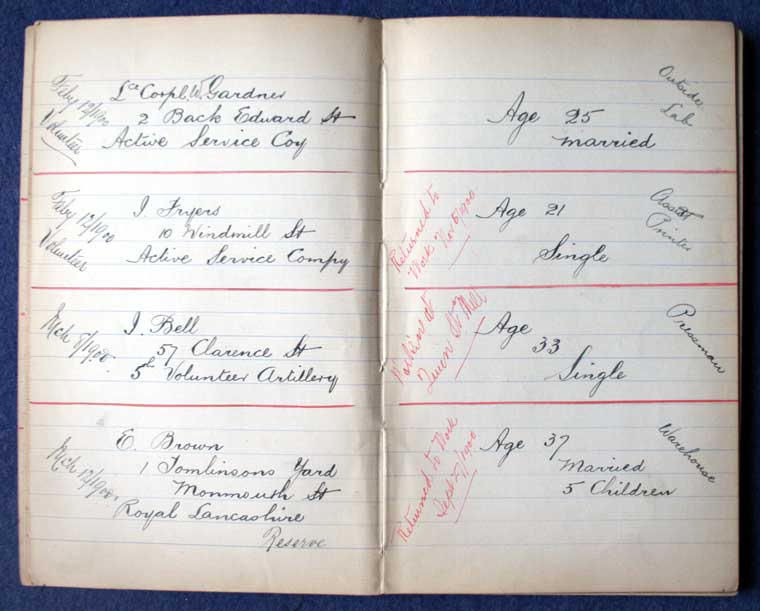 Feby 12/1900
Volunteer
Lce Corpl. W. Gardner
2 Back Edward St
Active Service Coy
Age 25
married
Outside
Lab
Feby 12/1900
Volunteer
I. Fryers
10 Windmill St
Active Service Compy
Returned to
Work Nov 5/1900
Age 21
Single
Printer
Mch 8/1900.
I. Bell
57 Clarence St
5th Volunteer Artillery
Working at
Queen St Mill
Age
33
Single
Pressman
Mch 12/1900.
E. Brown
1 Tomlinsons Yard
Monmouth St
Royal Lancashire
Reserve
Returned to Work
Sept /1900
Age 37
Married
5 Children
Warehouse